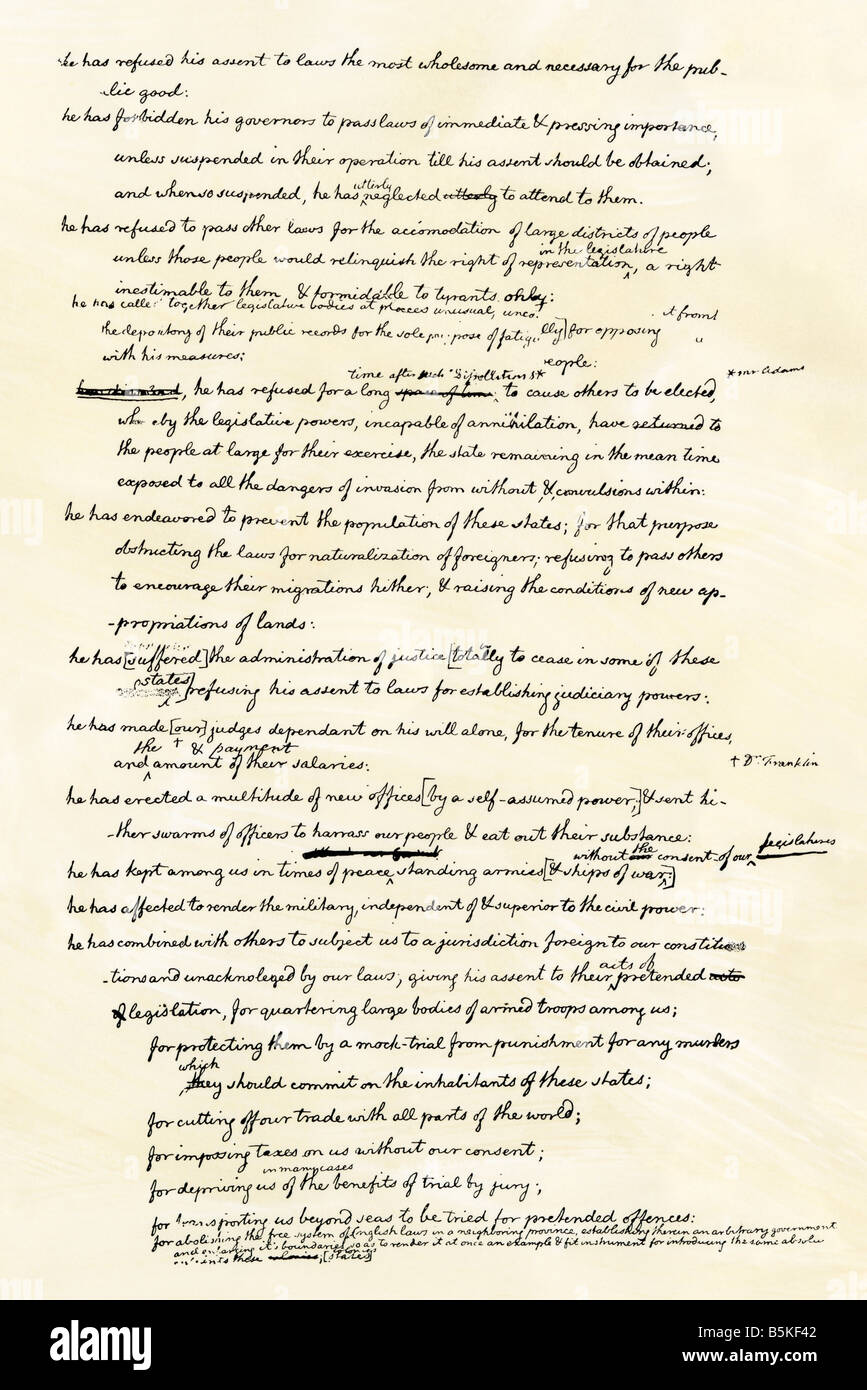 he has refused his assent to laws the most wholesome and necessary for the pub-
lic good:
he has forbidden his governors to pass laws of immediate & pressing importance,
unless suspended in their operation till his assent should be obtained;
utterly
and when so suspended, he has neglected utterly to attend to them.
he has refused to pass other laws for the accomodation of large districts of people
in the legislature
unless those people would relinquish the right of representation, a right
inestimable to them & formidable to tyrants only:
he has called together legislative bodies at places unusual, unco
t from
the depository of their public records for the sole purpose of fatigu
lly] for opposing
with his measures;
eople:
time after such Dissolutions*
*mr Adams
he has refused for a long space of time to cause others to be elected,
whereby the legislative powers, incapable of annihilation, have returned to
the people at large for their exercise, the state remaining in the mean time
exposed to all the dangers of invasion from without & convulsions within:
he has endeavored to prevent the population of these states; for that purpose
obstructing the laws for naturalization of foreigners; refusing to pass others
to encourage their migrations hither; & raising the conditions of new ap-
-propriations of lands:
he has [suffered] the administration of justice [totally to cease in some of these
states]
refusing his assent to laws for establishing judiciary powers:
he has made [our] judges dependant on his will alone, for the tenure of their offices,
the † & payment
† Dr. Franklin
and amount of their salaries:
he has erected a multitude of new offices [by a self-assumed power,] & sent hi-
-ther swarms of officers to harrass our people & eat out their substance:
without the consent of our legislatures
he has kept among us in times of peace standing armies [& ships of war:]
he has affected to render the military, independent of & superior to the civil power:
he has combined with others to subject us to a jurisdiction foreign to our constitu
acts of
-tions and unacknoleged by our laws; giving his assent to their pretended acts
of legislation, for quartering large bodies of armed troops among us;
for protecting them by a mock-trial from punishment for any murders
which
they should commit on the inhabitants of these states;
for cutting off our trade with all parts of the world;
for imposing taxes on us without our consent;
in many cases
for depriving us of the benefits of trial by jury;
for transporting us beyond seas to be tried for pretended offences:
for abolishing the free system of English laws in a neighboring province, establishing therein an arbitrary government
and enlarging it's boundaries so as to render it at once an example & fit instrument for introducing the same absolu
into these colonies; [states]
alamy
Image ID: B5KF42
www.alamy.com